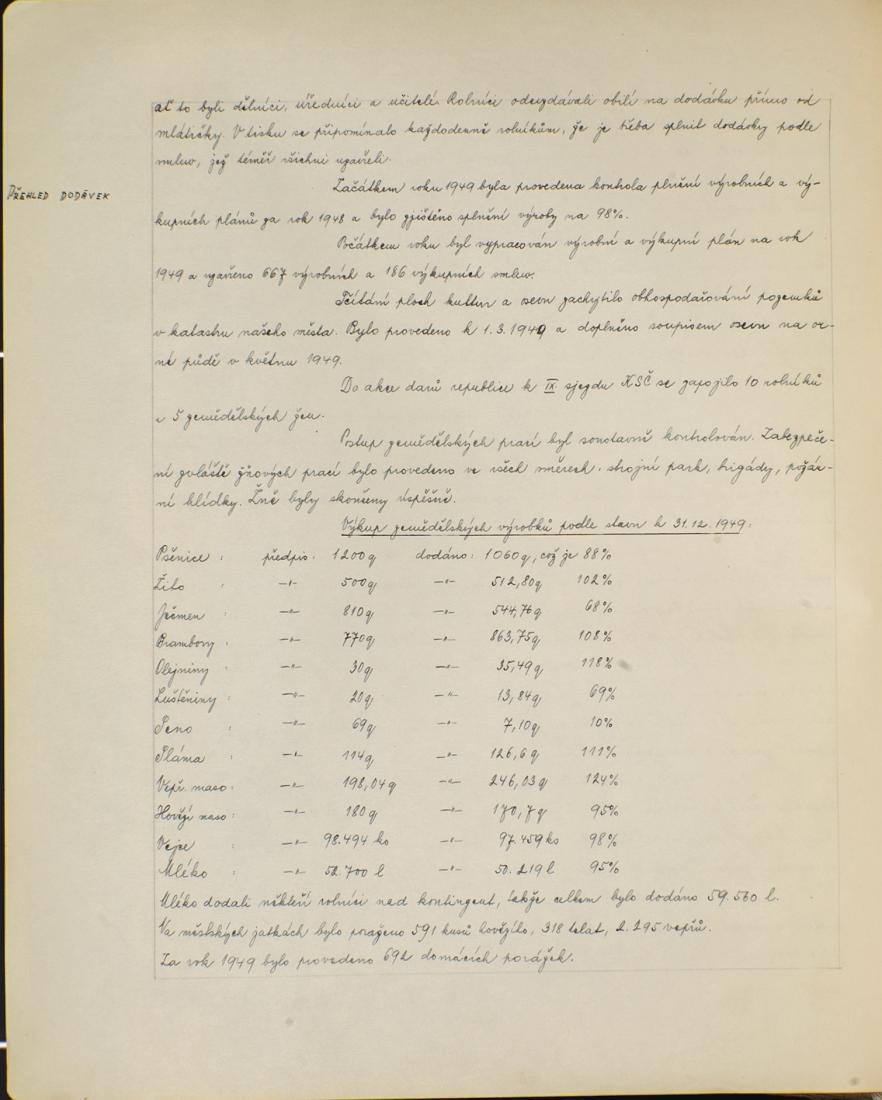 ať to byli dělníci, úředníci a učitelé. Rolníci odevzdávali obilí na dodávku přímo od
mlátičky. V tisku se připomínalo každodenně rolníkům, že je třeba splnit dodávky podle
smluv, jež téměř všichni uzavřeli.
Začátkem roku 1949 byla provedena kontrola plnění výrobních a vý-
PŘEHLED DODÁVEK
kupních plánů za rok 1948 a bylo zjištěno splnění výroby na 98%.
Počátkem roku byl vypracován výrobní a výkupní plán na rok
1949 a uzavřeno 667 výrobních a 186 výkupních smluv.
Sčítání ploch kultur a osevu zachytilo obhospodařování pozemků
v katastru našeho města. Bylo provedeno k 1.3.1949 a doplněno soupisem osevu na or-
né půdě v květnu 1949.
Do akce darů republice k IX. sjezdu KSČ se zapojilo 10 rolníků
a 5 zemědělských žen.
Postup zemědělských prací byl soustavně kontrolován. Zabezpeče-
ní zvláště žňových prací bylo provedeno ve všech směrech: strojní park, brigády, požár-
ní hlídky. Žně byly skončeny úspěšně.
Výkup zemědělských výrobků podle stavu k 31.12.1949:
Pšenice : předpis: 1200q dodáno: 1060q, což je 88%
Žito : -"- 500q -"- 512,80q 102%
Ječmen : -"- 810q -"- 544,76q 68%
Brambory : -"- 770q -"- 863,75q 108%
Olejniny : -"- 30q -"- 35,49q 118%
Luštěniny : -"- 20q -"- 13,84q 69%
Seno : -"- 69q -"- 7,10q 10%
Sláma : -"- 114q -"- 126,6q 111%
Vepř. maso: -"- 198,04q -"- 246,03q 124%
Hovězí maso: -"- 180q -"- 170,7q 95%
Vejce : -"- 98.494 ks -"- 97.459 ks 98%
Mléko : -"- 52.700 l -"- 50.219 l 95%
Mléko dodali někteří rolníci nad kontingent, takže celkem bylo dodáno 59.560 l.
Na městských jatkách bylo poraženo 591 kusů hovězího, 318 telat, 2.295 vepřů.
Za rok 1949 bylo provedeno 692 domácích porážek.